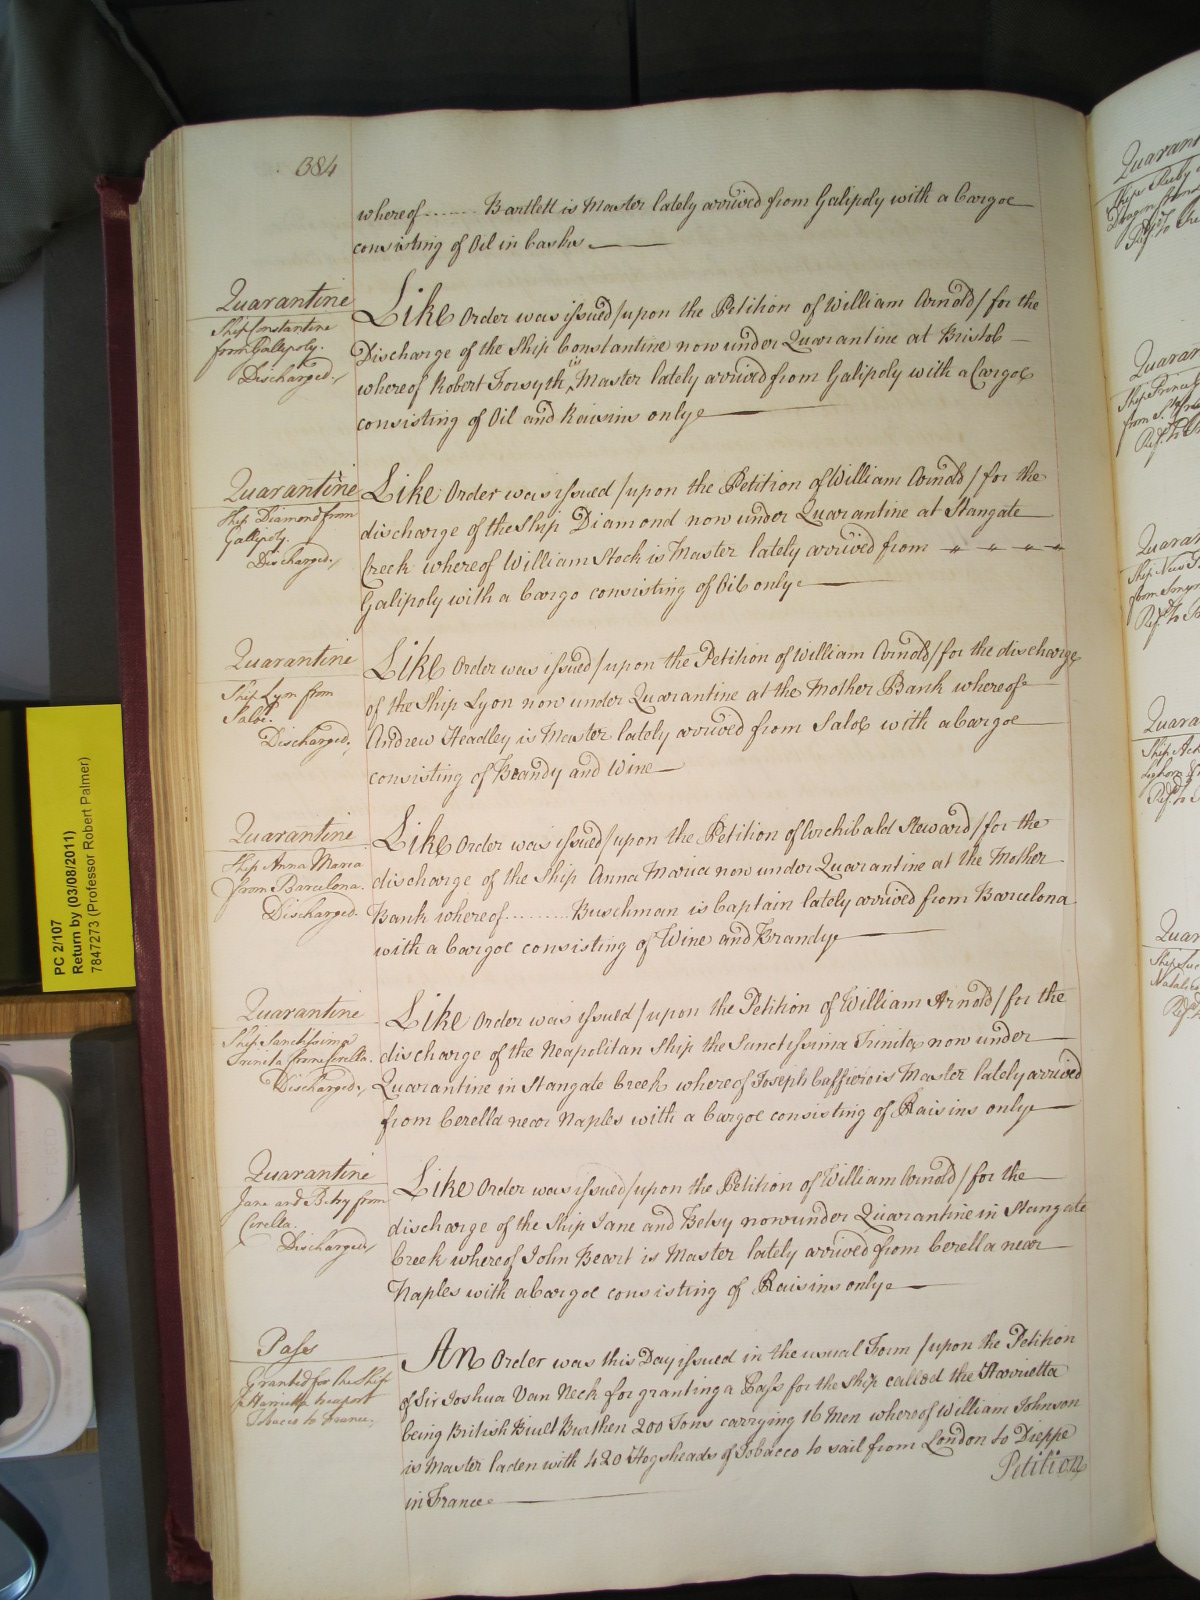 384
whereof ........ Bartlett is Master lately arrived from Galipoly with a Cargoe
consisting of Oil in Casks
Quarantine
Ship Constantine
from Gallipoly.
Discharged./
Like Order was issued /upon the Petition of William Arnold/ for the
Discharge of the Ship Constantine now under Quarantine at Bristol
whereof Robert Forsyth is Master lately arrived from Galipoly with a Cargoe
consisting of Oil and Raisins only
Quarantine
Ship Diamond from
Gallipoly.
Discharged./
Like Order was issued /upon the Petition of William Arnold/ for the
discharge of the Ship Diamond now under Quarantine at Stangate
Creek whereof William Stock is Master lately arrived from " " " "
Galipoly with a Cargo consisting of Oil only
Quarantine
Ship Lyon from
Saloe.
Discharged./
Like Order was issued /upon the Petition of William Arnold/ for the discharge
of the Ship Lyon now under Quarantine at the Mother Bank whereof
Andrew Headley is Master lately arrived from Saloe with a Cargoe
consisting of Brandy and Wine
Quarantine
Ship Anna Maria
from Barcelona.
Discharged.
Like Order was issued /upon the Petition of Archibald Steward/ for the
discharge of the Ship Anna Maria now under Quarantine at the Mother
Bank whereof ......... Buschman is Captain lately arrived from Barcelona
with a Cargoe consisting of Wine and Brandy
Quarantine
Ship Sanctissima
Trinita from Cirella.
Discharged./
Like Order was issued /upon the Petition of William Arnold/ for the
discharge of the Neapolitan Ship the Sanctissima Trinita now under
Quarantine in Stangate Creek whereof Joseph Caffiero is Master lately arrived
from Cerella near Naples with a Cargoe consisting of Raisins only
Quarantine
Jane and Betsy from
Cirella.
Discharged/
Like Order was issued /upon the Petition of William Arnold/ for the
discharge of the Ship Jane and Betsy now under Quarantine in Stangate
Creek whereof John Beart is Master lately arrived from Cerella near
Naples with a Cargoe consisting of Raisins only
Pass
Granted for the Ship
Harrietta to export
Tobacco to France.
An Order was this Day issued in the usual Form /upon the Petition
of Sir Joshua Van Neck for granting a Pass for the Ship called the Harrietta
being British Built Burthen 200 Tons carrying 16 Men whereof William Johnson
is Master laden with 420 Hogsheads of Tobacco to sail from London to Dieppe
in France
Petition
PC 2/107
Return by (03/08/2011)
7847273 (Professor Robert Palmer)